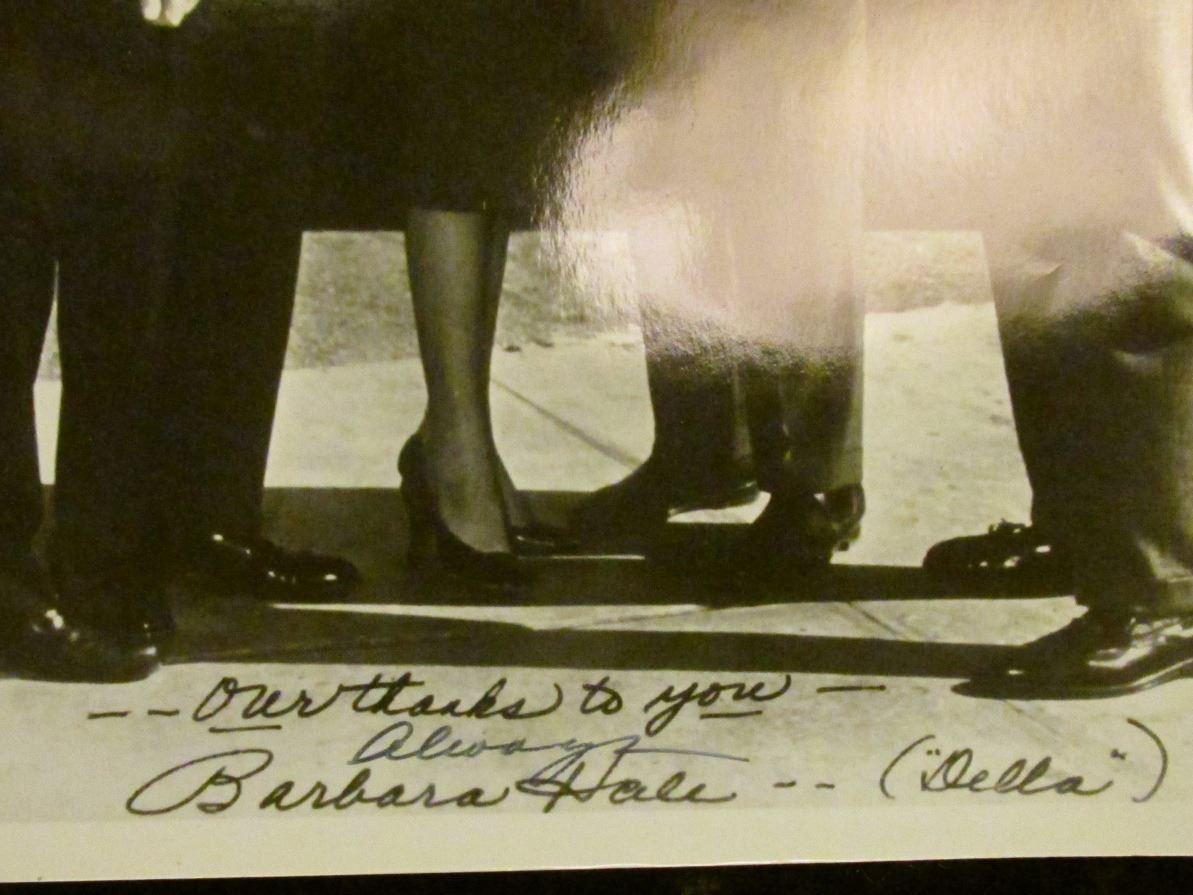 -- Our thanks to you —
Always
Barbara Hale -- ("Della")